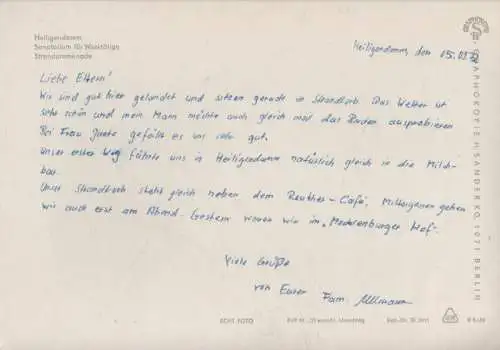 Heiligendamm
Sanatorium für Werktätige
Strandpromenade
Heiligendamm, den 15.03.
Liebe Eltern!
Wir sind gut hier gelandet und sitzen gerade in Strandkorb. Das Wetter ist
sehr schön und mein Mann möchte auch gleich mal das Baden ausprobieren
Bei Frau gefällt es uns sehr gut.
Unser erster Weg führte uns in Heiligendamm natürlich gleich in die Milch-
bar.
Unser Strandkorb steht gleich neben dem Reuther-Café, Mittagessen gehen
wir auch erst am Abend. Gestern waren wir im „Mecklenburger Hof".
Viele Grüße
von Eurer Fam. Ullmann
ECHT FOTO
GRAPHOKOPIE H. SANDER KG, 1071 BERLIN